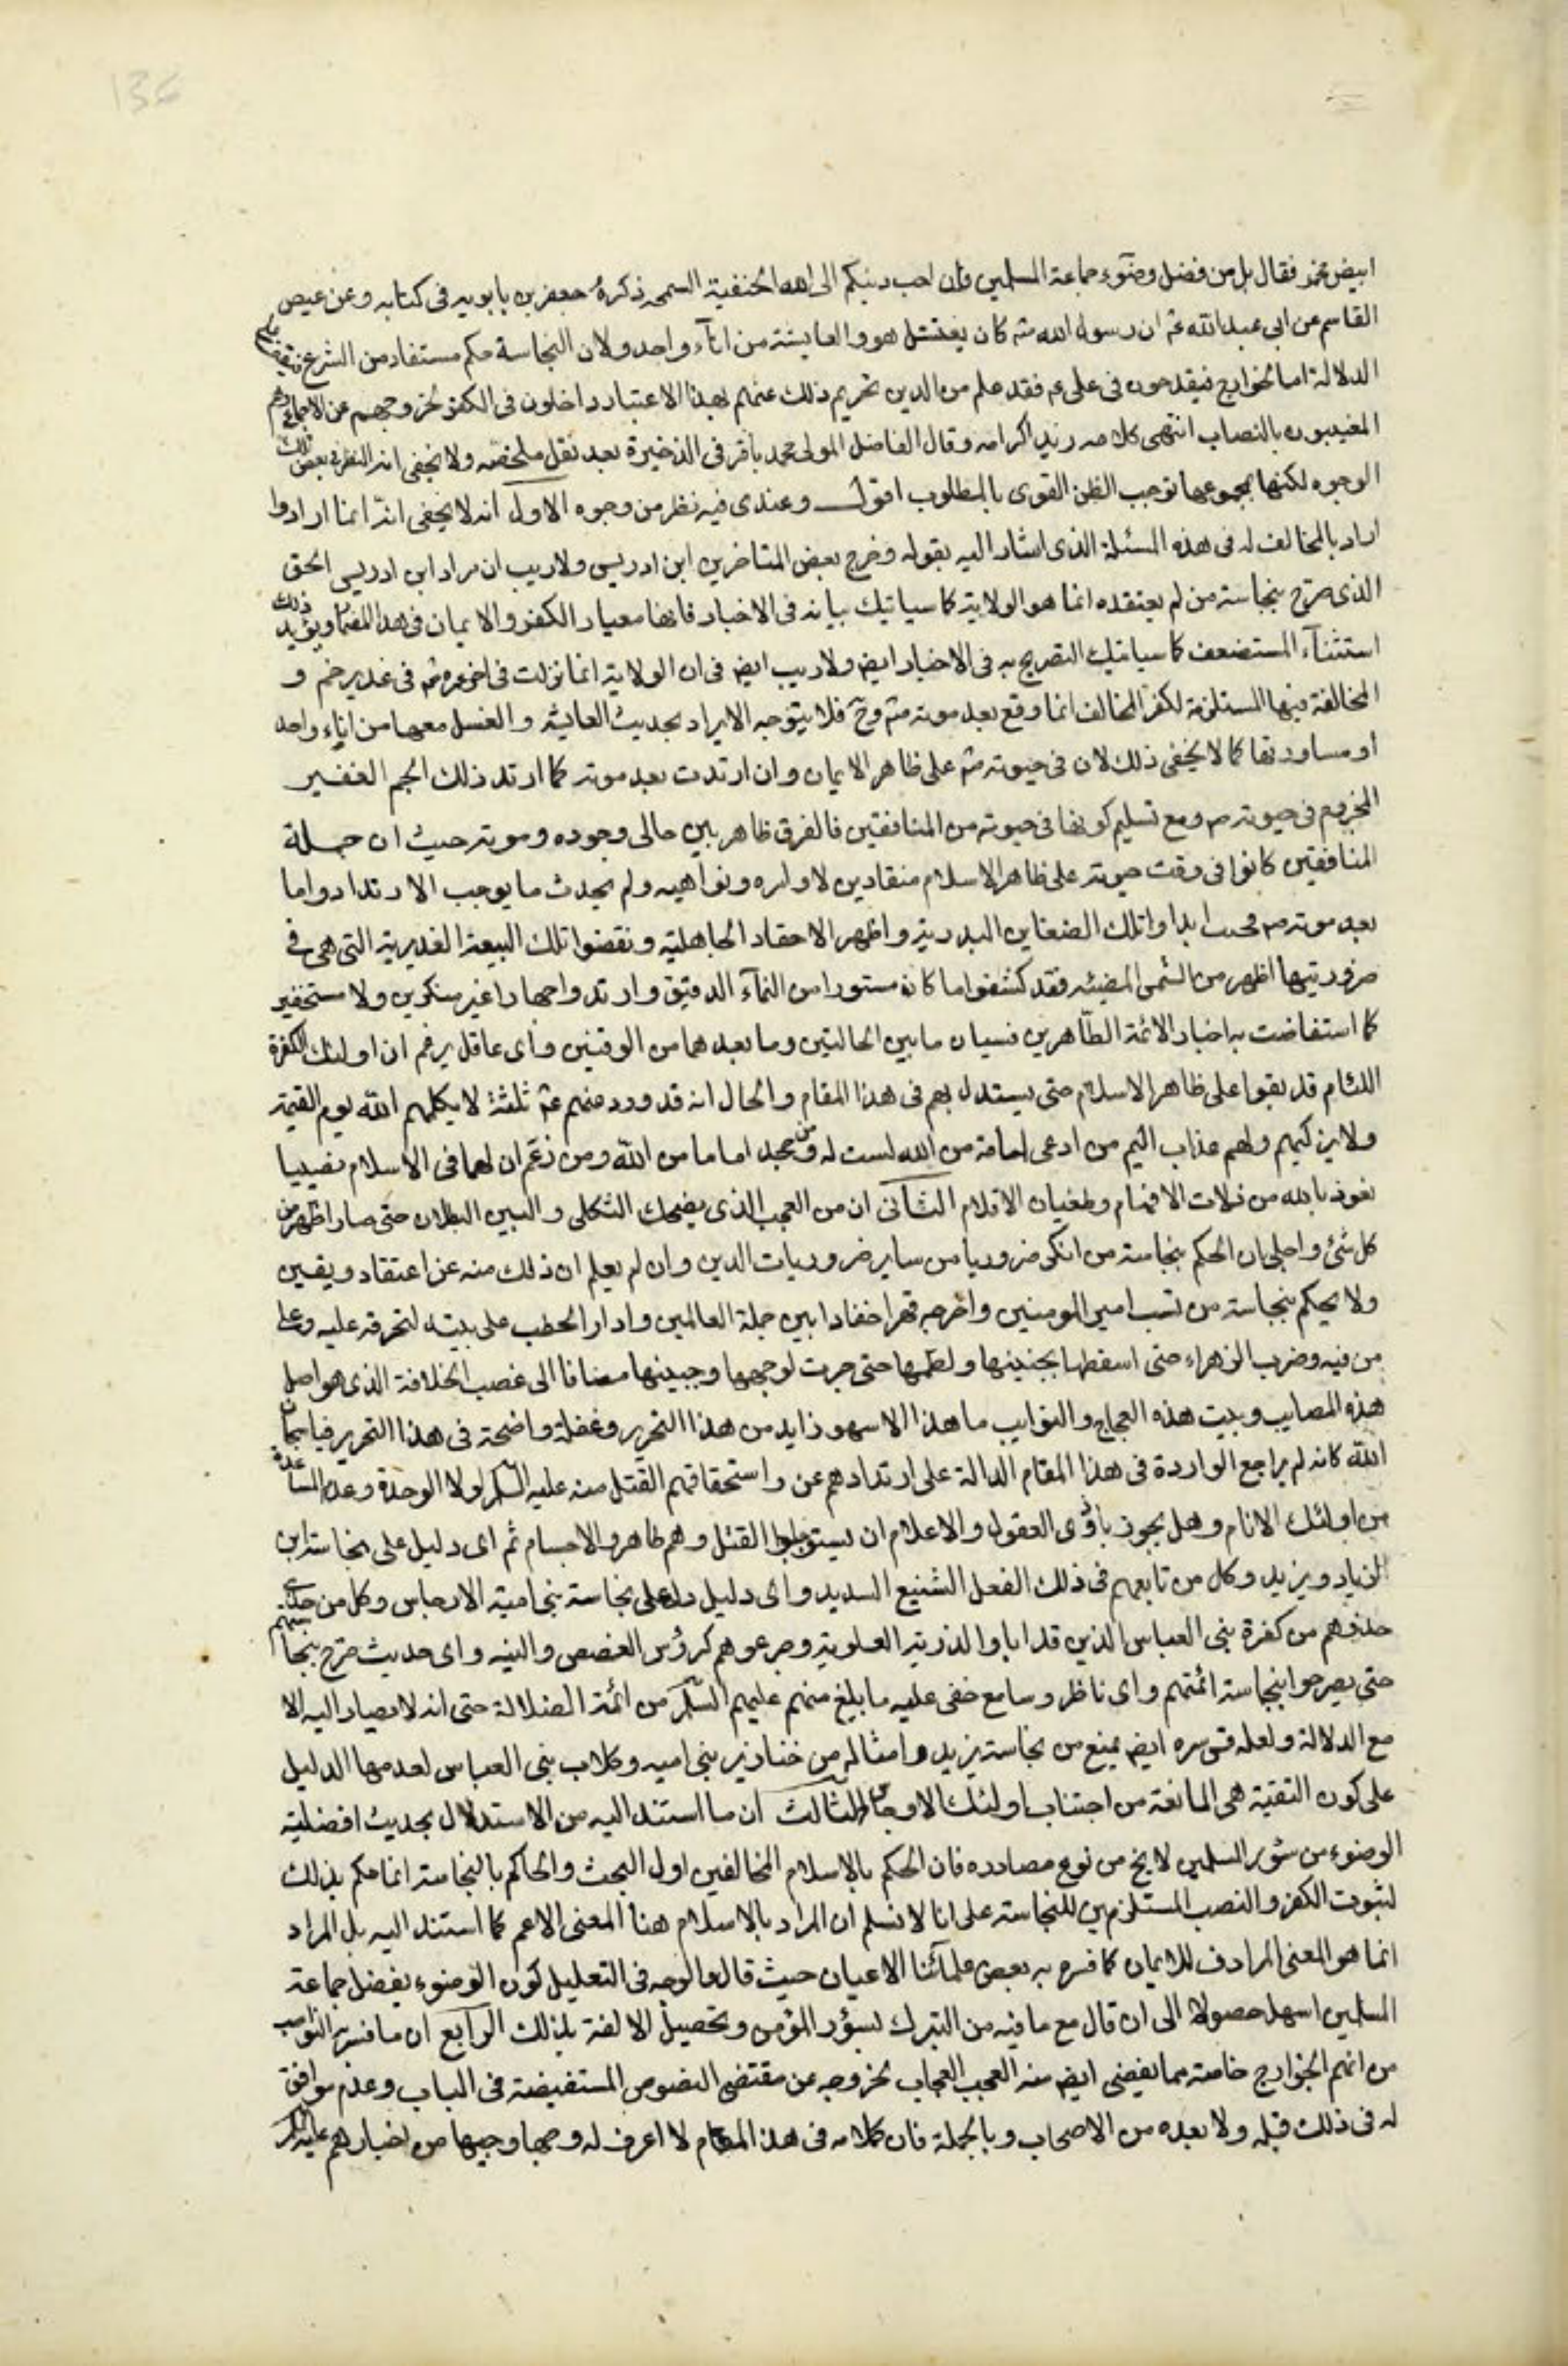 136
ابيض مخمر فقال بل من فضل وضوء جماعة المسلمين فان احب دينكم الى الله الحنفية السمحه ذكره جعفر بن بابويه فى كتابه وعن عيص
القاسم عن ابى عبد الله عم ان رسول الله صم كان يغتسل هو والعايشة من اناء واحد ولان النجاسة حكم مستفاد من الشرع فيقف على
الدلالة اما الخوارج فيقدحون فى على عم فقد علم من الدين تحريم ذلك عنهم بهذا الاعتبار داخلون فى الكفر لخروجهم عن الاجماع وهم
المغيبون بالنصاب انتهى كلامه زيد اكرامه وقال الفاضل المولى محمد باقر فى الذخيرة بعد نقل ملخصه ولا يخفى انه للنظر فى بعض تلك
الوجوه لكنها بمجموعها توجب الظن القوى بالمطلوب اقول وعندى فيه نظر من وجوه الاول انه لا يخفى انه انما ارادوا
اراد بالمخالف له فى هذه المسئلة الذى اشار اليه بقوله وخرج بعض المتاخرين ابن ادريس ولا ريب ان مراد ابن ادريس الحق
الذى صرح بنجاسة من لم يعتقده انما هو الولاية كما سياتيك بيانه فى الاخبار فانها معيار الكفر والايمان فى هذا المقام ويؤيد ذلك
استثناء المستضعف كما سياتيك التصريح به فى الاخبار ايض ولا ريب ايض فى ان الولاية انما نزلت فى اخر عمره صم فى غدير خم و
المخالفة فيها المستلزمة لكفر المخالف انما وقع بعد موته صم وح فلا يتوجه الايراد بحديث العايشة والغسل معها من اناء واحد
او مساورتها كما لا يخفى ذلك لان فى حيوته صم على ظاهر الايمان وان ارتدت بعد موته كما ارتد ذلك الجم الغفير
المجزوم فى حيوته صم ومع تسليم كونها فى حيوته من المنافقين فالفرق ظاهر بين حالى وجوده وموته حيث ان جملة
المنافقين كانوا فى وقت حيوته على ظاهر الاسلام منقادين لاوامره ونواهيه ولم يحدث ما يوجب الارتداد واما
بعد موته صم فحيث ابداوا تلك الضغاين البدرية واظهر الاحقاد الجاهلية ونقضوا تلك البيعة الغديرية التى هى فى
ضروريتها اظهر من الشمس المضيئه فقد كشفوا ما كان مستورا من الماء الدفيق وارتدوا جهارا غير منكرين ولا مستخفين
كما استفاضت به اخبار الائمة الطاهرين فسيان ما بين الحالتين وما بعدهما من الوقتين واى عاقل يزعم ان اولئك الكفرة
اللئام قد بقوا على ظاهر الاسلام حتى يستدل بهم فى هذا المقام والحال انه قد ورد عنهم عم ثلثة لا يكلمهم الله يوم القيمة
ولا يزكيهم ولهم عذاب اليم من ادعى امامة من الله ليست له ومن جحد اماما من الله ومن زعم ان لهما فى الاسلام نصيبا
نعوذ بالله من زلات الافهام وطغيان الاقلام الثانى ان من العجب الذى يضحك الثكلى والبين البطلان حتى صار اظهر من
كل شئ واجلى بان الحكم بنجاسة من انكر ضروريا من ساير ضروريات الدين وان لم يعلم ان ذلك منه عن اعتقاد ويقين
ولا يحكم بنجاسة من نسب امير المومنين واخرجه قهرا خفادا بين جملة العالمين وادار الحطب على بيته لتحرقه عليه وعلى
من فيه وضرب الزهراء حتى اسقطها بجنينها ولطمها حتى جرت لوجهها وجبينها مضافا الى غصب الخلافة الذى هو اصل
هذه المصايب وبيت هذه العجاج والنوايب ما هذا الا سهو زايد من هذا التحرير وغفلة واضحة فى هذا التحرير فيا سبحان
الله كانه لم يراجع الواردة فى هذا المقام الدالة على ارتدادهم عن واستحقاقهم القتل منه عليه السلام لولا الوحدة وعدم المساعدة
من اولئك الانام وهل يجوز يا ذوى العقول والاعلام ان يستوجبوا القتل وهم طاهروا الاجسام ثم اى دليل على نجاسة ابن
الزياد ويزيد وكل من تابعهم فى ذلك الفعل الشنيع السديد واى دليل دل على نجاسة بنى امية الارجاس وكل من حذى
حذوهم من كفرة بنى العباس الذين قد ابادوا الذرية العلوية وجرعوهم كرؤس الغصص والنيه واى حديث صرح بنجاستهم
حتى يصرحوا بنجاسة ائمتهم واى ناظر وسامع خفى عليه ما بلغ منهم عليهم السلام من ائمة الضلالة حتى انه لا يصار اليه الا
مع الدلالة ولعله قدس سره ايض يمنع من نجاسة يزيد وامثاله من خنازير بنى اميه وكلاب بنى العباس لعدمها الدليل
على كون التقية هى المانعة من اجتناب اولئك الاوجاس الثالث ان ما استند اليه من الاستدلال بحديث افضلية
الوضوء من سؤر المسلمين لا يخ من نوع مصادره فان الحكم بالاسلام المخالفين اول البحث والحاكم بالنجاسة انما حكم بذلك
لثبوت الكفر والنصب المستلزمين للنجاسة على انا لا نسلم ان المراد بالاسلام هنا المعنى الاعم كما استند اليه بل المراد
انما هو المعنى المرادف للايمان كما فسره به بعض علمائنا الاعيان حيث قال والوجه فى التعليل كون الوضوء بفضل جماعة
المسلمين اسهل حصولا الى ان قال مع ما فيه من التبرك بسؤر المؤمن وتحصيل الالفة بذلك الرابع ان ما فسر به النواصب
من انهم الخوارج خاصة مما يفضى ايض منه العجب العجاب لخروجه عن مقتضى النصوص المستفيضة فى الباب وعدم موافق
له فى ذلك قبله ولا بعده من الاصحاب وبالجملة فان كلامه فى هذا المقام لا اعرف له وجها وجيها من اخبارهم عليهم السلام